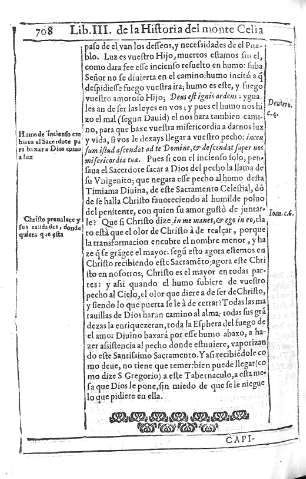 708 Lib. III. de la Historia del monte Celia
paso de el van los deseos, y necesidades de el Pueblo.
Luz es vuestro Hijo, muertos estamos sin el,
como dara fee esse incienso resuelto en humo: suba
Señor no se divierta en el camino: humo incita a q̃
despidiesse fuego vuestra ira; humo es este, y fuego
vuestro amoroso Hijo; Deus est ignis ardens; iguales
an de ser las leyes en vos; y pues el humo nos hizo
el mal (segun Dauid) el nos hara tambien camino,
para que baxe vuestra misericordia a darnos luz
y vida, si vos le dexays llegar a vuestro pecho:
sum istud ascendat ad te Domine, & descendat super nos
misericordia tua. Pues si con el incienso solo, pensaua
el Sacerdote sacar a Dios del pecho la llama de
su Vnigenito; que negara esse pecho al humo desta
Timiama Diuina, de este Sacramento Celestial, dõde
se halla Christo fauoreciendo al humilde polvo
del penitente, con quien su amor gustò de juntarle?
Que si Christo dize, in me manet, & ego in eo, claro
està que el olor de Christo à de realçar, porque
la transformacion encubre el nombre menor, y haze
q̃ se grãgee el mayor: segũ esto agora estemos en
Christo recibiendo este Sacramẽto; agora este Christo
en nosotros, Christo es el mayor en todas partes:
y assi quando el humo subiere de vuestro
pecho al Cielo, el olor que diere a de ser de Christo,
y siendo lo que puerta se le à de cerrar? Todas las marauillas
de Dios haran camino al alma; todas sus grãdezas
la enriqueceran, toda la Esphera del fuego de
el amor Diuino baxarà por esse humo abaxo, a hazer
assistencia al pecho donde estuuiere, vaporizando
este Santissimo Sacramento. Y assi recibiendole como
deue, no tiene que temer: bien puede llegar (como
dize S. Gregorio) a este Tabernaculo, a esta mesa
que Dios le pone, sin miedo de que se le niegue
lo que pidiere en ella.
CAPI-
Humo de incienso en
el Sacerdote
baxara a Dios
a luz
Christo preualece y
sus calidades, donde
quiera que està
Deutero.
c. 4.
Ioan. c. 6.